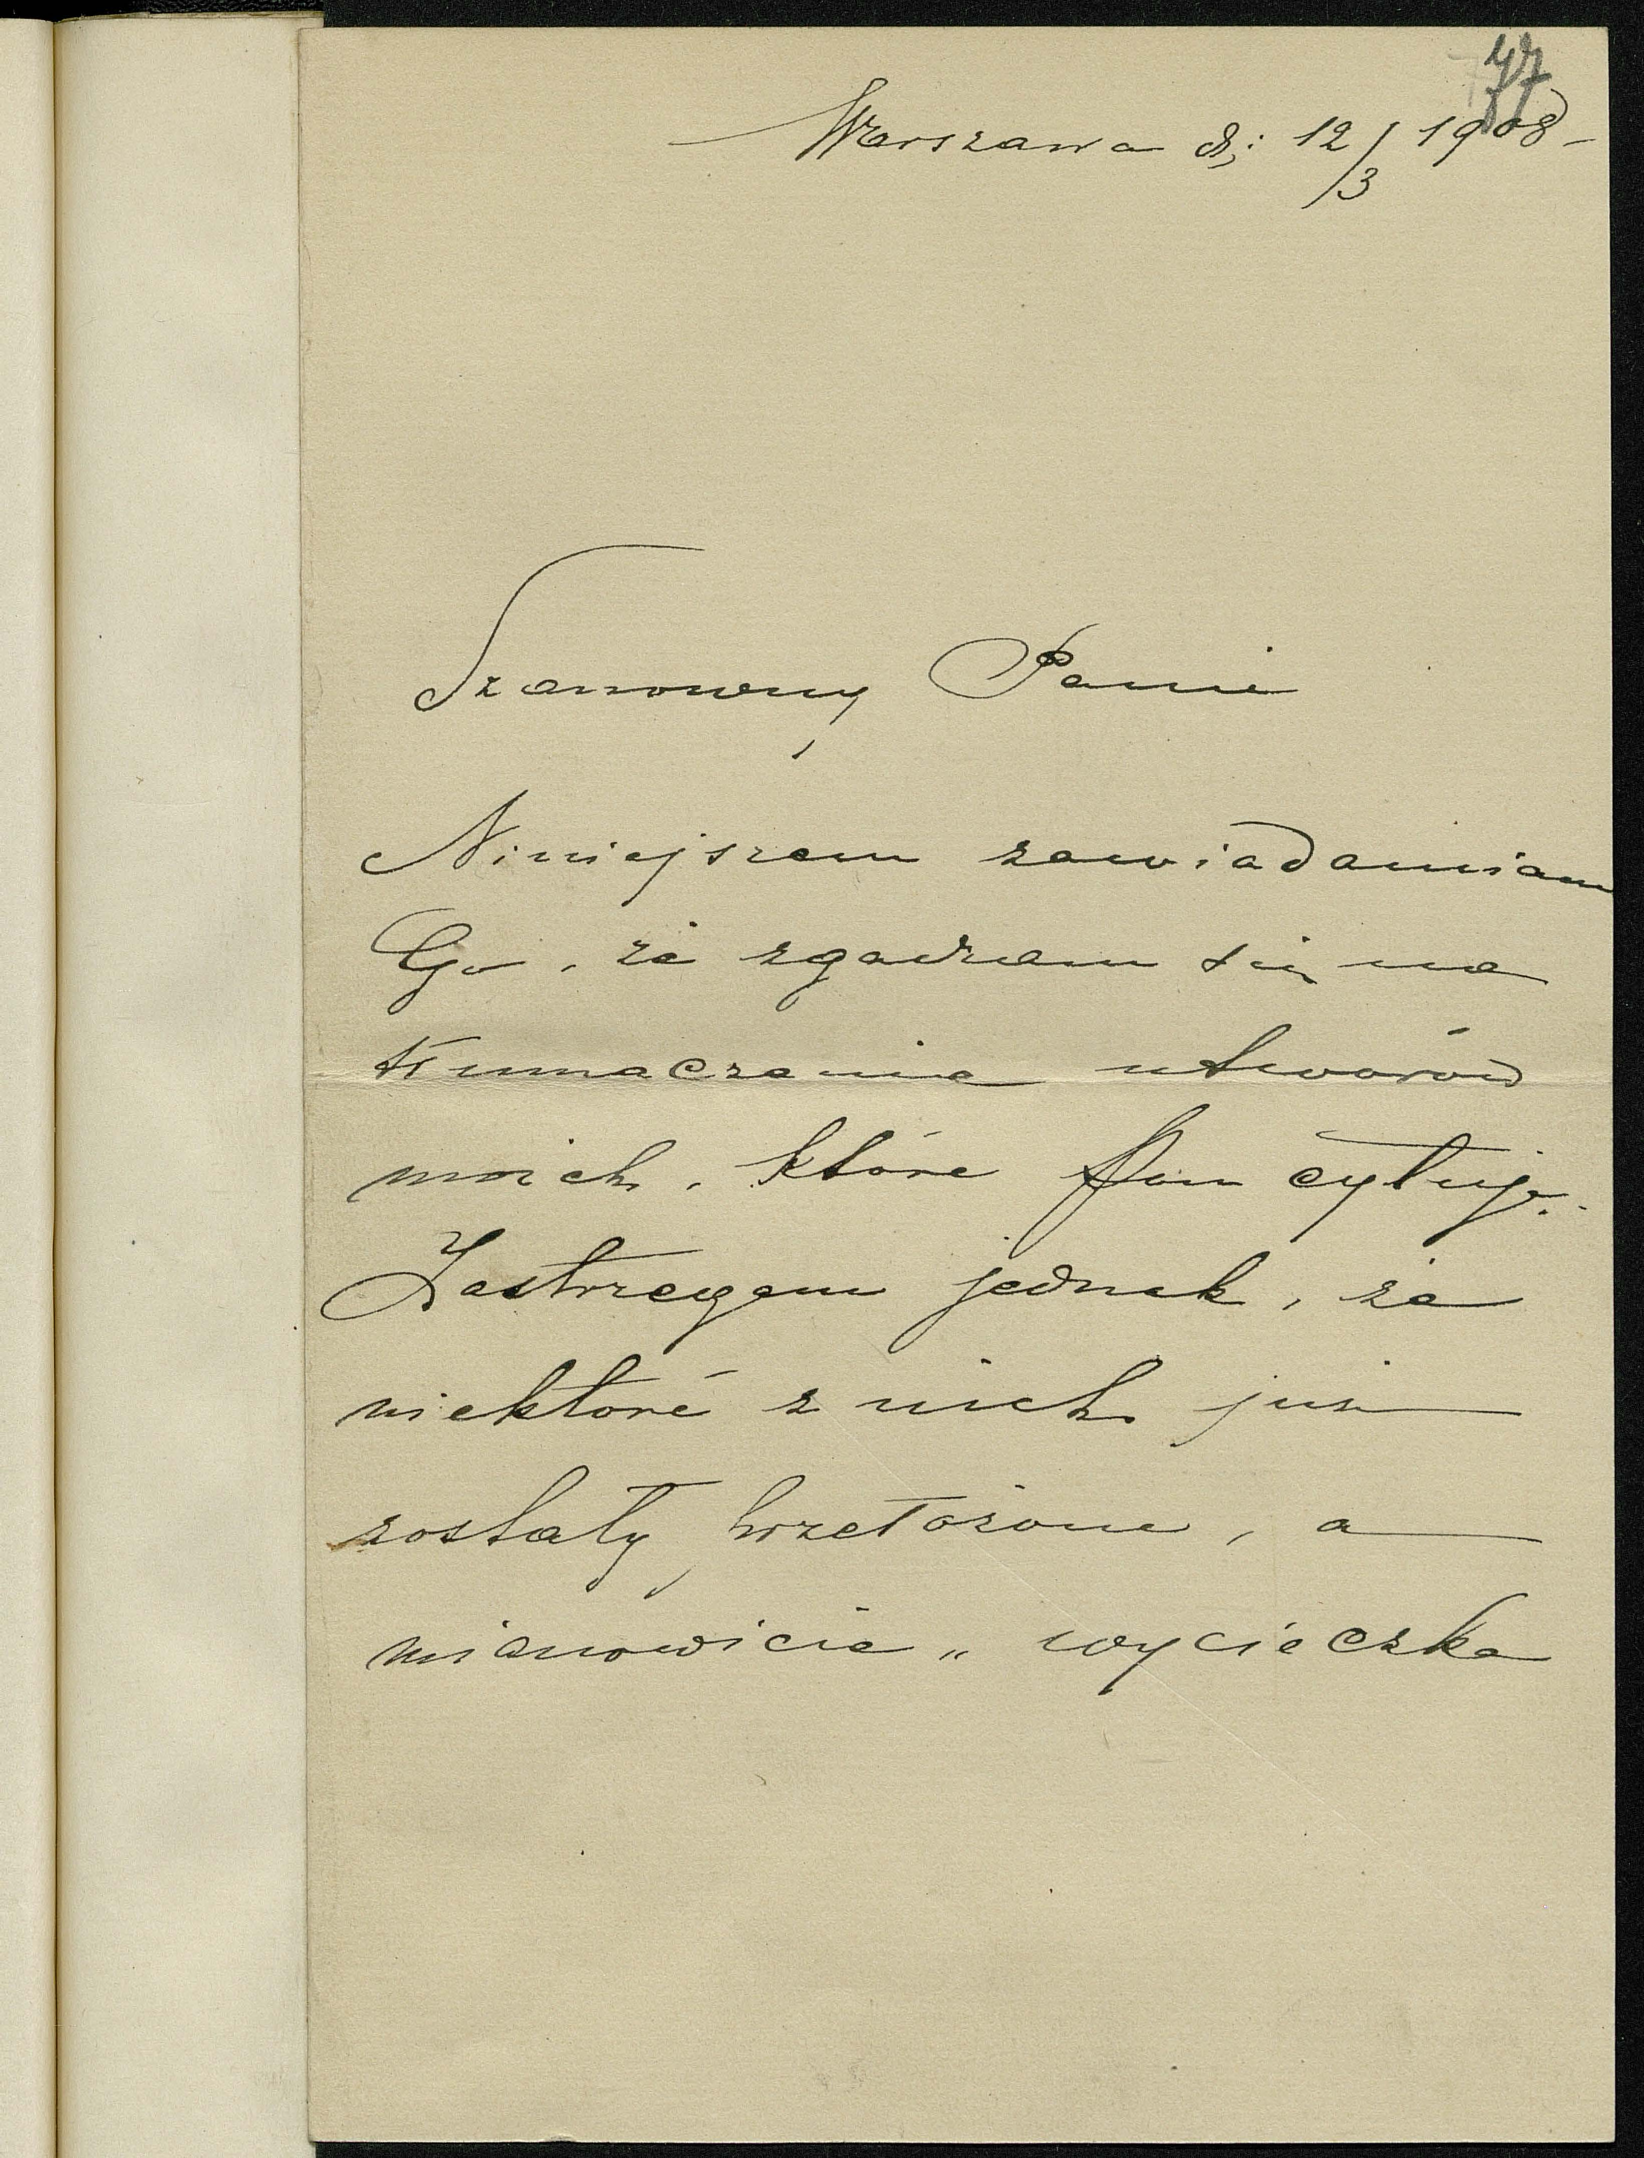 77
Warszawa d: 12/3 1908 -
Szanowny Panie
Niniejszem zawiadamiam
Go, że zgadzam się na
tłumaczenie utworów
moich, które Pan cytuje.
Zastrzegam jednak, że
niektóre z nich już
zostały przełożone, a
mianowicie „ wycieczka